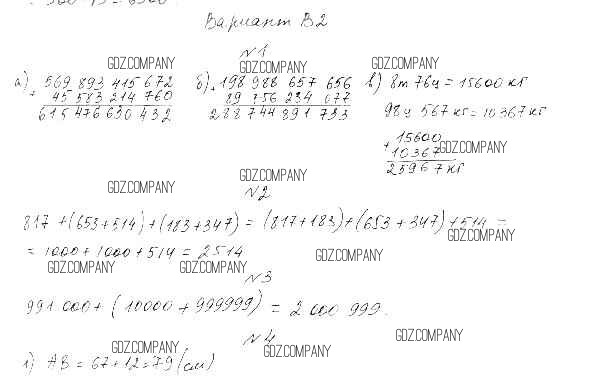 Вариант В2
№1
а) + 569 893 415 672
45 583 214 760
615 476 630 432
б) + 198 988 657 656
89 756 234 077
288 744 891 733
в) 8т 76ц = 15600 кг
98ц 567 кг = 10367 кг
+ 15600
10367
25967 кг
№2
817 + (653 + 514) + (183 + 347) = (817 + 183) + (653 + 347) + 514 =
= 1000 + 1000 + 514 = 2514
№3
991 000 + (10000 + 999999) = 2 000 999.
№4
1) АВ = 67 + 12 = 79 (см)
GDZ.COMPANY
GDZ.COMPANY
GDZ.COMPANY
GDZ.COMPANY
GDZ.COMPANY
GDZ.COMPANY
GDZ.COMPANY
GDZ.COMPANY
GDZ.COMPANY
GDZ.COMPANY
GDZ.COMPANY
GDZ.COMPANY
GDZ.COMPANY